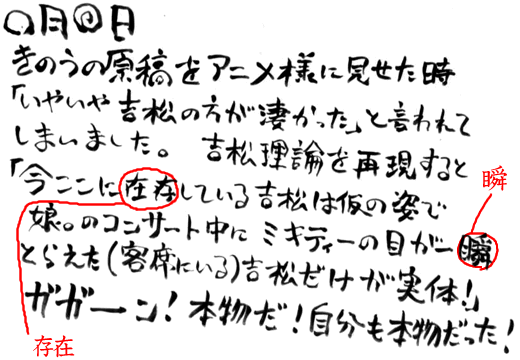 ○月◎日
きのうの原稿をアニメ様に見せた時
「いやいや吉松の方が凄かった」と言われて
しまいました。 吉松理論を再現すると
「今ここに在存している吉松は仮の姿で
娘。のコンサート中にミキティーの目が一瞬
とらえた(客席にいる)吉松だけが実体!」
ガガーン!本物だ!自分も本物だった!
瞬
存在